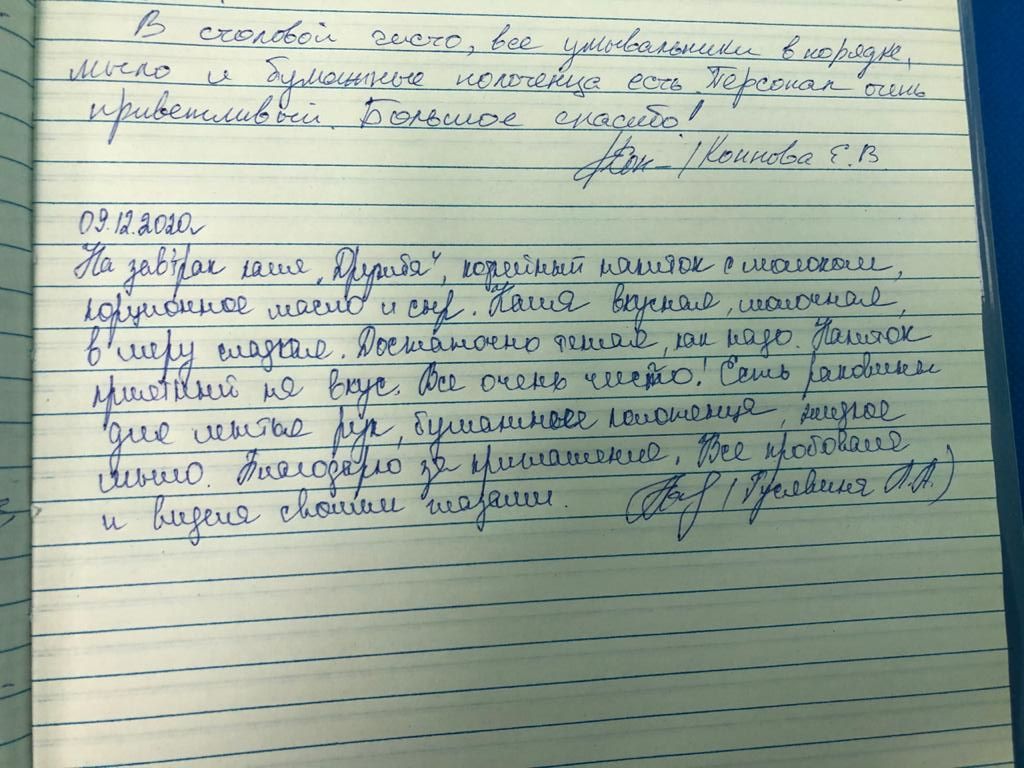 В столовой чисто, все умывальники в порядке,
мыло и бумажные полотенца есть. Персонал очень
приветливый. Большое спасибо!
/ Коннова Е.В
09.12.2020г
На завтрак каша „Дружба", кофейный напиток с молоком,
порционное масло и сыр. Каша вкусная, молочная,
в меру сладкая. Достаточно теплая, как надо. Напиток
приятный на вкус. Все очень чисто! Есть раковины
для мытья рук, бумажные полотенца, жидкое
мыло. Благодарю за приглашение. Все пробовала
и видела своими глазами. (Гуслвина А.А.)